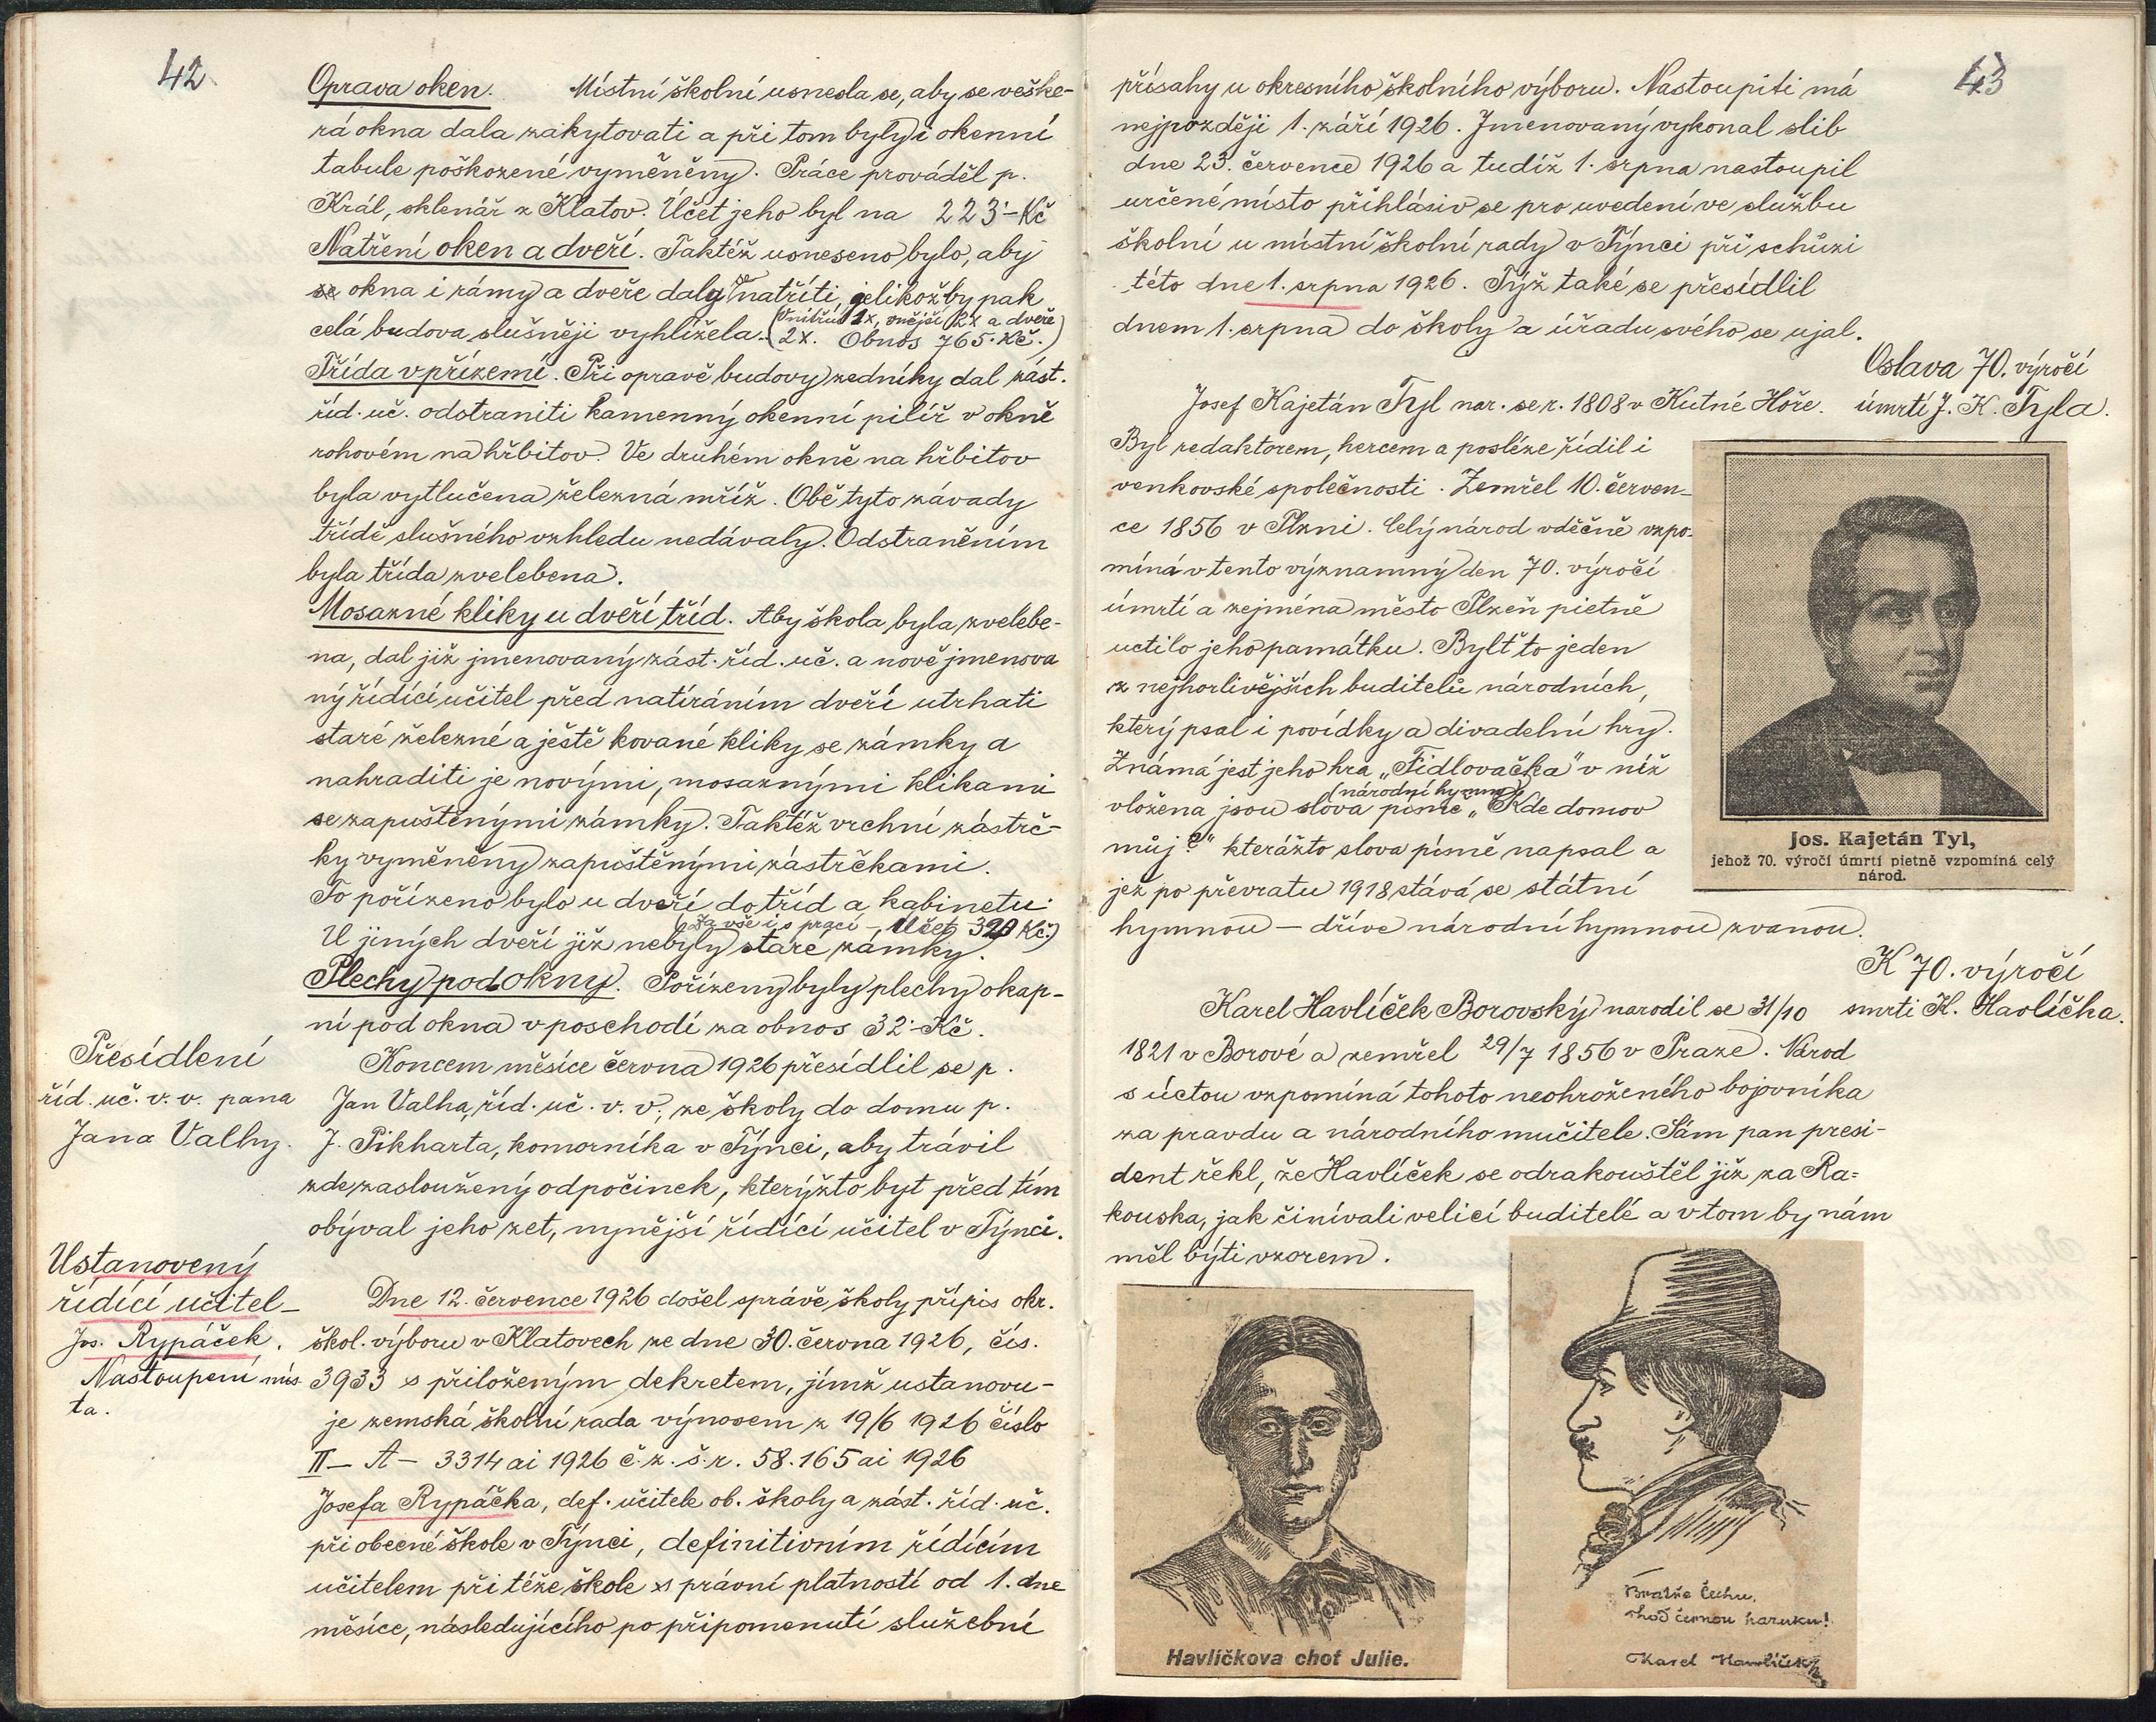 42
Oprava oken. Místní školní usnesla se, aby se veške-
rá okna dala zakytovati a při tom byly i okenní
tabule poškozené vyměněny. Práce prováděl p.
Král, sklenář z Klatov. Účet jeho byl na 223·-Kč
Natření oken a dveří. Taktéž usneseno bylo, aby
okna i rámy a dveře daly se natříti, jelikož by pak
celá budova slušněji vyhlížela. (Vnitřní 1x, vnější 2x a dveře
2x. Obnos 765·Kč.)
Třída v přízemí. Při opravě budovy zedníky dal zást.
říd. uč. odstraniti kamenný okenní pilíř v okně
rohovém na hřbitov. Ve druhém okně na hřbitov
byla vytlučena železná mříž. Obě tyto závady
třídě slušného vzhledu nedávaly. Odstraněním
byla třída zvelebena.
Mosazné kliky u dveří tříd. Aby škola byla zvelebe-
na, dal již jmenovaný zást. říd. uč. a nově jmenova
ný řídící učitel před natíráním dveří utrhati
staré železné a ještě kované kliky se zámky a
nahraditi je novými, mosaznými klikami
se zapuštěnými zámky. Taktéž vrchní zástrč-
ky vyměněny zapuštěnými zástrčkami.
To pořízeno bylo u dveří do tříd a kabinetu.
(Za vše i s prací - Účet 320 Kč.)
U jiných dveří již nebyly staré zámky.
Plechy pod okny. Pořízeny byly plechy okap-
ní pod okna v poschodí za obnos 32·-Kč.
Přesídlení
říd. uč. v. v. pana
Jana Valhy.
Koncem měsíce června 1926 přesídlil se p.
Jan Valha, říd. uč. v. v., ze školy do domu p.
J. Pikharta, komorníka v Týnci, aby trávil
zde zasloužený odpočinek, kterýžto byt před tím
obýval jeho zet, nynější řídící učitel v Týnci.
Ustanovený
řídící učitel-
Jos. Rypáček.
Nastoupení mís
ta.
Dne 12. července 1926 došel správě školy přípis okr.
škol. výboru v Klatovech ze dne 30. června 1926, čís.
3933 s přiloženým dekretem, jímž ustanovu-
je zemská školní rada výnosem z 19/6 1926 číslo
II - A - 3314 ai 1926 č. z. š. r. 58.165 ai 1926
Josefa Rypáčka, def. učitele ob. školy a zást. říd. uč.
při obecné škole v Týnci, definitivním řídícím
učitelem při téže škole s právní platností od 1. dne
měsíce, následujícího po připomenutí služební
43
přísahy u okresního školního výboru. Nastoupiti má
nejpozději 1. září 1926. Jmenovaný vykonal slib
dne 23. července 1926 a tudíž 1. srpna nastoupil
určené místo přihlásiv se pro uvedení ve službu
školní u místní školní rady v Týnci při schůzi
této dne 1. srpna 1926. Týž také se přesídlil
dnem 1. srpna do školy a úřadu svého se ujal.
Oslava 70. výročí
úmrtí J. K. Tyla.
Josef Kajetán Tyl nar. se r. 1808 v Kutné Hoře.
Byl redaktorem, hercem a posléze řídil i
venkovské společnosti. Zemřel 10. červen-
ce 1856 v Plzni. Celý národ vděčně vzpo-
míná v tento významný den 70. výročí
úmrtí a zejména město Plzeň pietně
uctilo jeho památku. Bylť to jeden
z nejhorlivějších buditelů národních,
který psal i povídky a divadelní hry.
Známá jest jeho hra „Fidlovačka" v níž
vložena jsou slova písně (národní hymny) „Kde domov
můj?" kterážto slova písně napsal a
jež po převratu 1918 stává se státní
hymnou - dříve národní hymnou zvanou.
Jos. Kajetán Tyl,
jehož 70. výročí úmrtí pietně vzpomíná celý
národ.
K 70. výročí
smrti K. Havlíčka.
Karel Havlíček Borovský narodil se 31/10
1821 v Borové a zemřel 29/7 1856 v Praze. Národ
s úctou vzpomíná tohoto neohroženého bojovníka
za pravdu a národního mučitele. Sám pan presi-
dent řekl, že Havlíček se odrakouštěl již za Ra-
kouska, jak činívali velicí buditelé a v tom by nám
měl býti vzorem.
Havlíčkova choť Julie.
Bratře Čechu,
shoď černou haruku!
Karel Havlíček